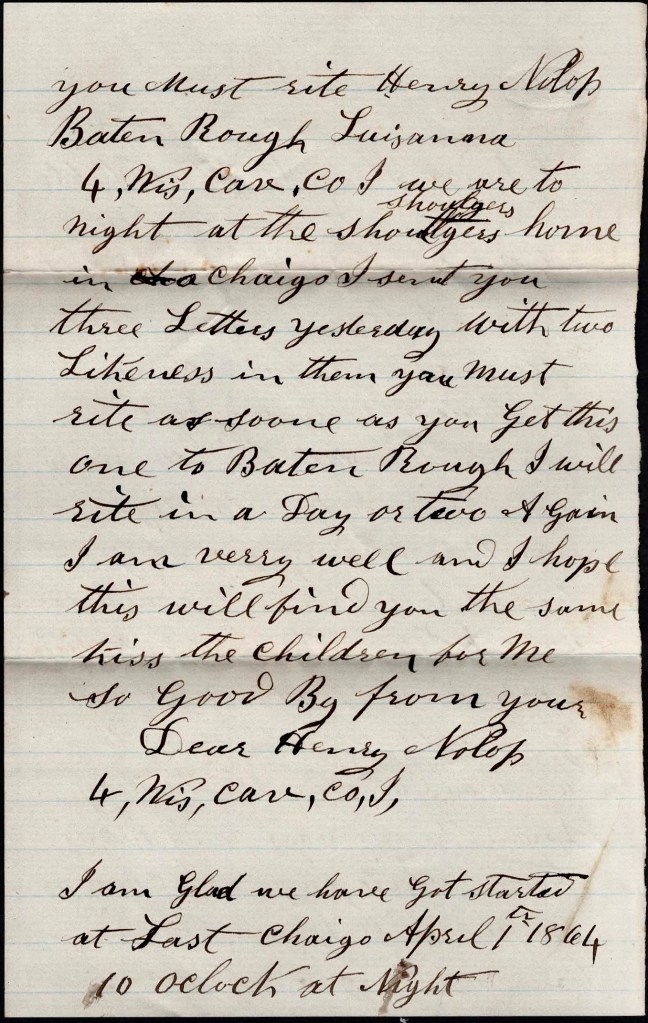 you Must rite Henry Nolop
Baten Rough Luisanna
4, Wis, Cav, Co I we are to
shoulgers
night at the shoulgers home
in Chaigo I sent you
three Letters yesterday with two
Likeness in them you Must
rite as soone as you Get this
one to Baten Rough I will
rite in a Day or two A Gain
I am verry well and I hope
this will find you the same
kiss the children for Me
So Good By from your
Dear Henry Nolop
4, Wis, Cav, Co, I,
I am Glad we have Got started
at Last Chaigo April 1th 1864
10 oclock at Night